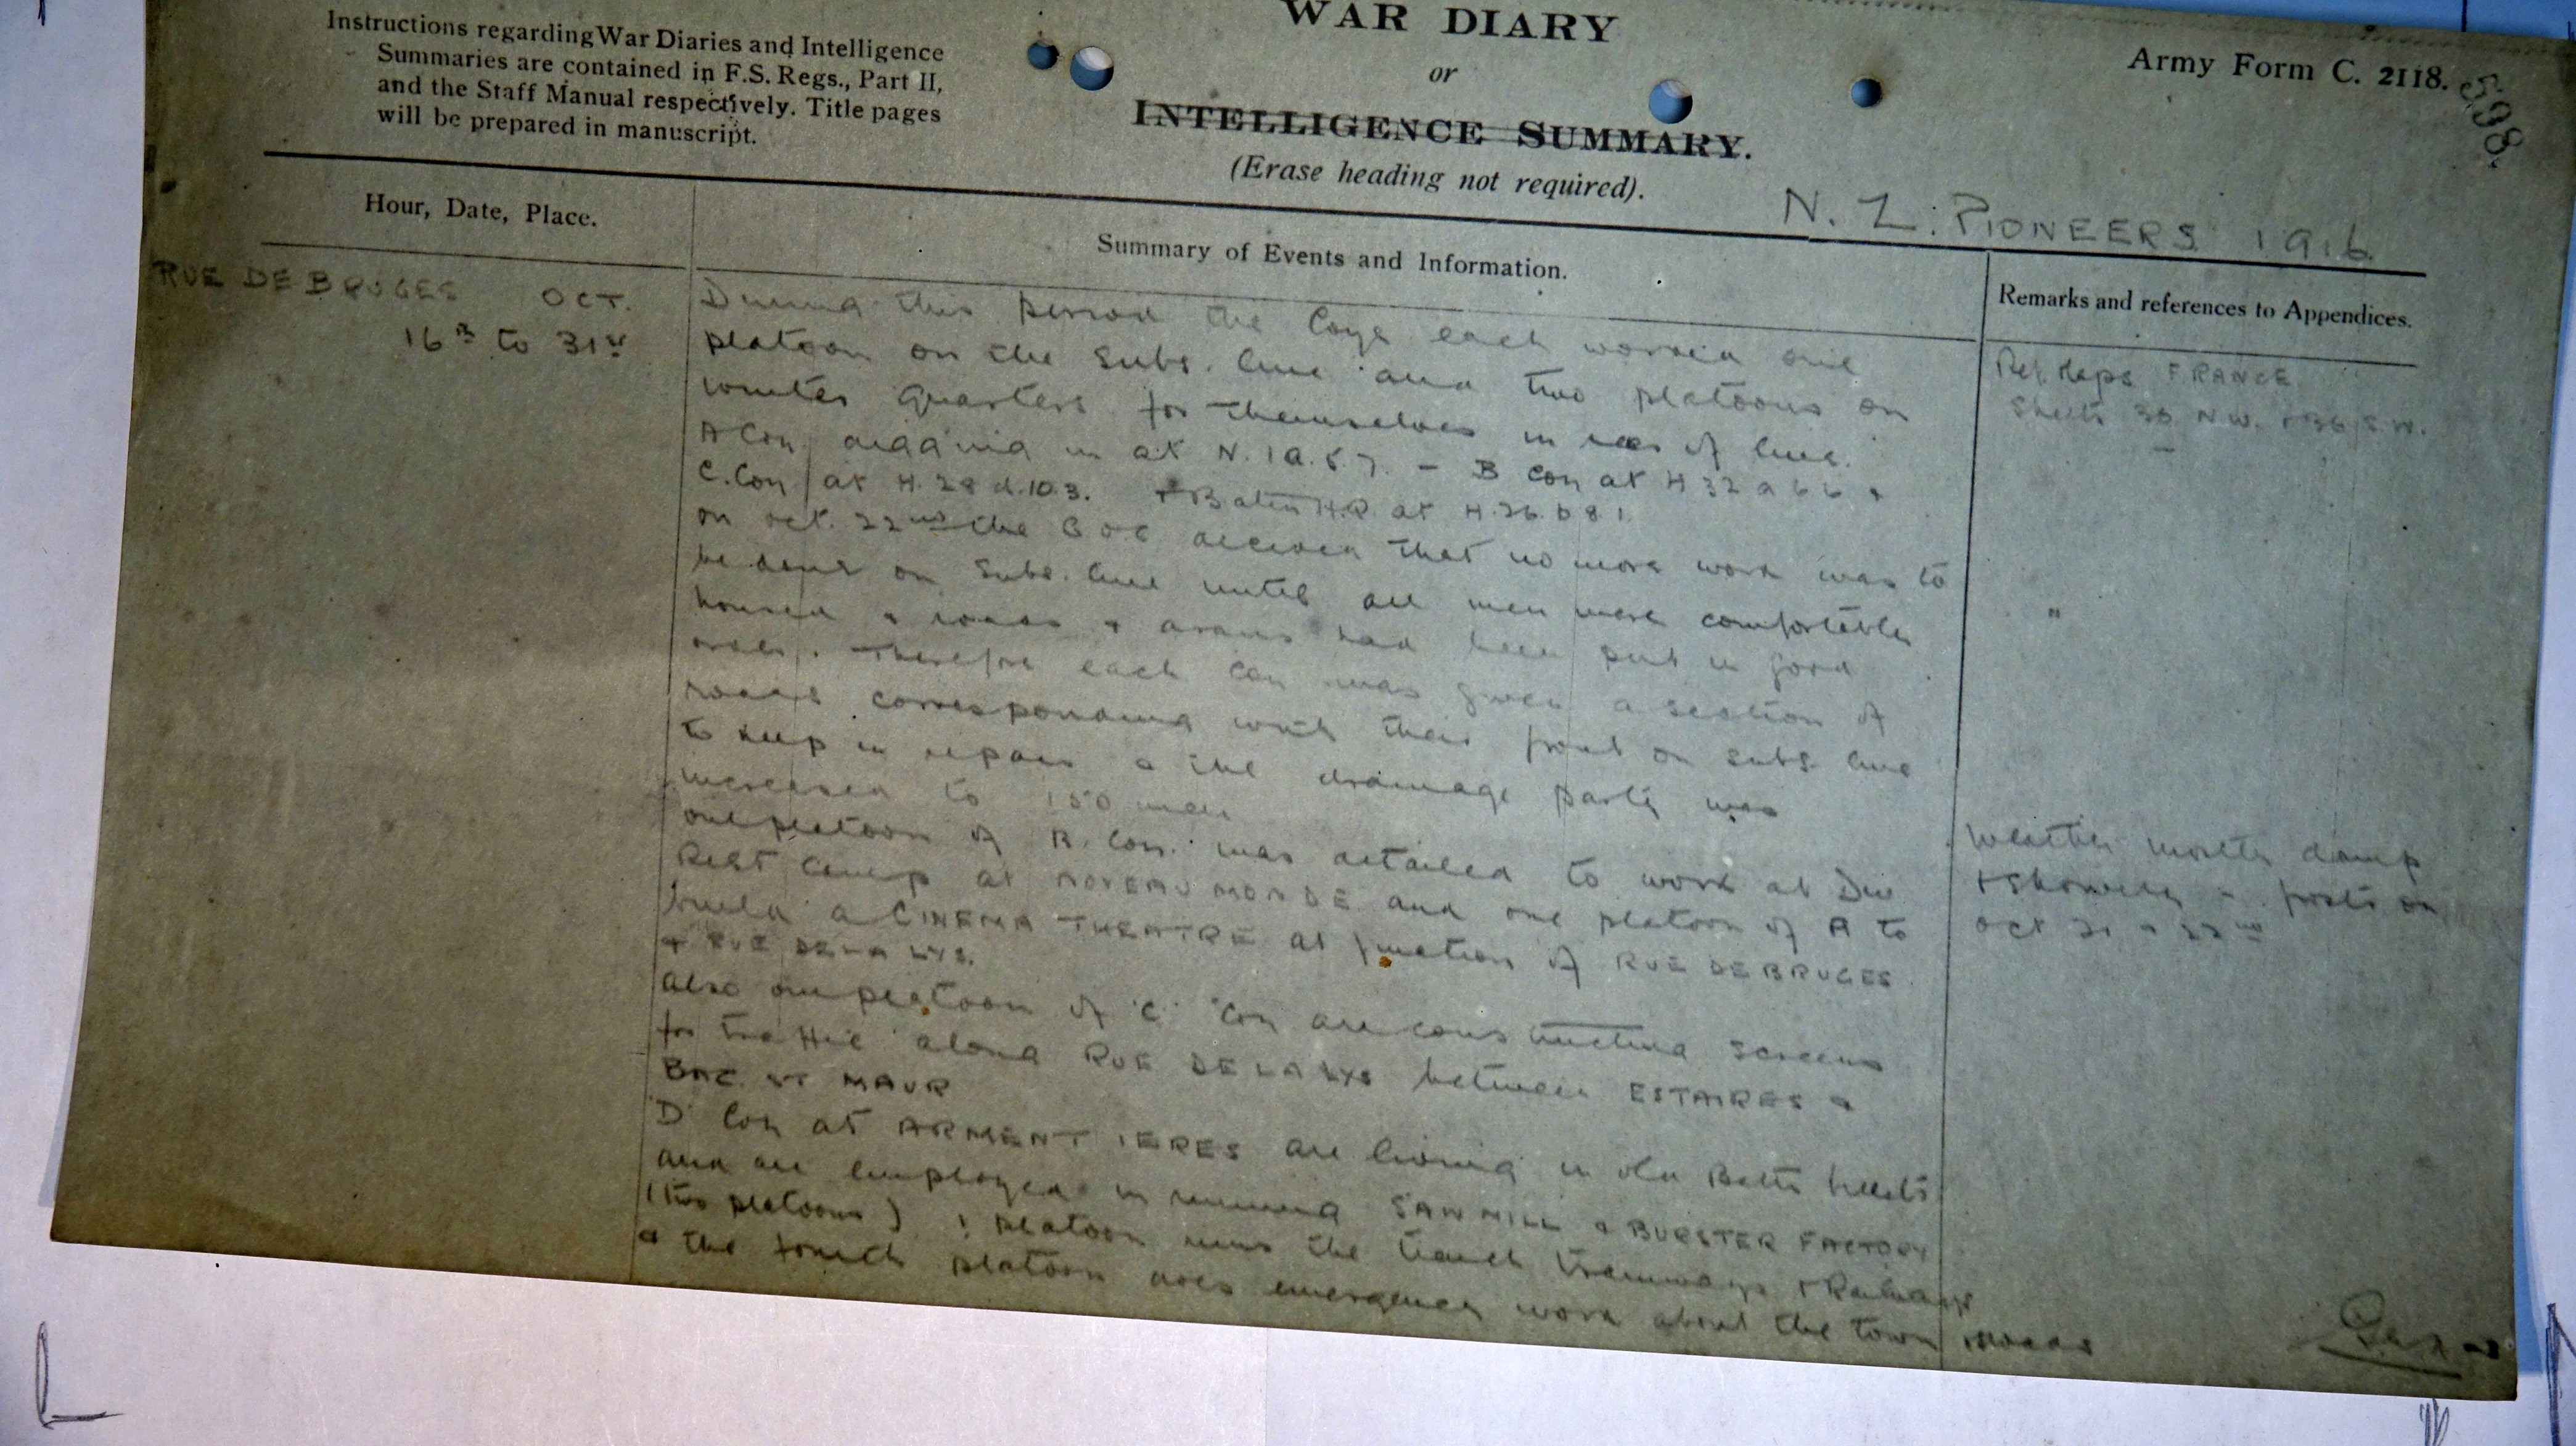 Instructions regarding War Diaries and Intelligence
Summaries are contained in F.S. Regs., Part II,
and the Staff Manual respectively. Title pages
will be prepared in manuscript.
WAR DIARY
or
INTELLIGENCE SUMMARY.
(Erase heading not required).
Army Form C. 2118.
598.
N. Z. PIONEERS 1916
Hour, Date, Place.
Summary of Events and Information.
Remarks and references to Appendices.
RUE DE BRUGES OCT.
16th to 31st
During this period the Coys each worked one
platoon on the Subs. line and two platoons on
winter quarters for themselves in rear of line.
A Coy digging in at N.1a.5.7. – B Coy at H 32 a 6 6 &
C. Coy at H. 28 d.10.3. + Batn H.Q. at H.26.b 8 1
on oct. 22nd the decided that no more work was to
be done on Subs. line until all men were comfortably
housed & roads & drains had been put in good
order. Therefore each Coy was given a section of
roads corresponding with their front on subs line
to keep in repair & the drainage party was
increased to 150 men
one platoon of B. Coy. was detailed to work at Div
Rest Camp at NOVEAU MONDE and one platoon of A to
build a CINEMA THEATRE at junction of RUE DE BRUGES
& RUE DE LA LYS.
also one platoon of 'C' Coy are constructing screens
for traffic along RUE DE LA LYS between ESTAIRES &
BAC ST MAUR
'D' Coy at ARMENTIERES are living in old Battn billets
and are employed in running SAWMILL & BURSTER FACTORY
(two platoons) 1 platoon runs the trench tramways & Railways
& the fourth platoon does emergency work about the town & roads
Ref. Maps FRANCE
Sheets 36 N.W. & 36 S.W.
"
Weather mostly damp
& showery – frosts on
oct 21 & 22nd